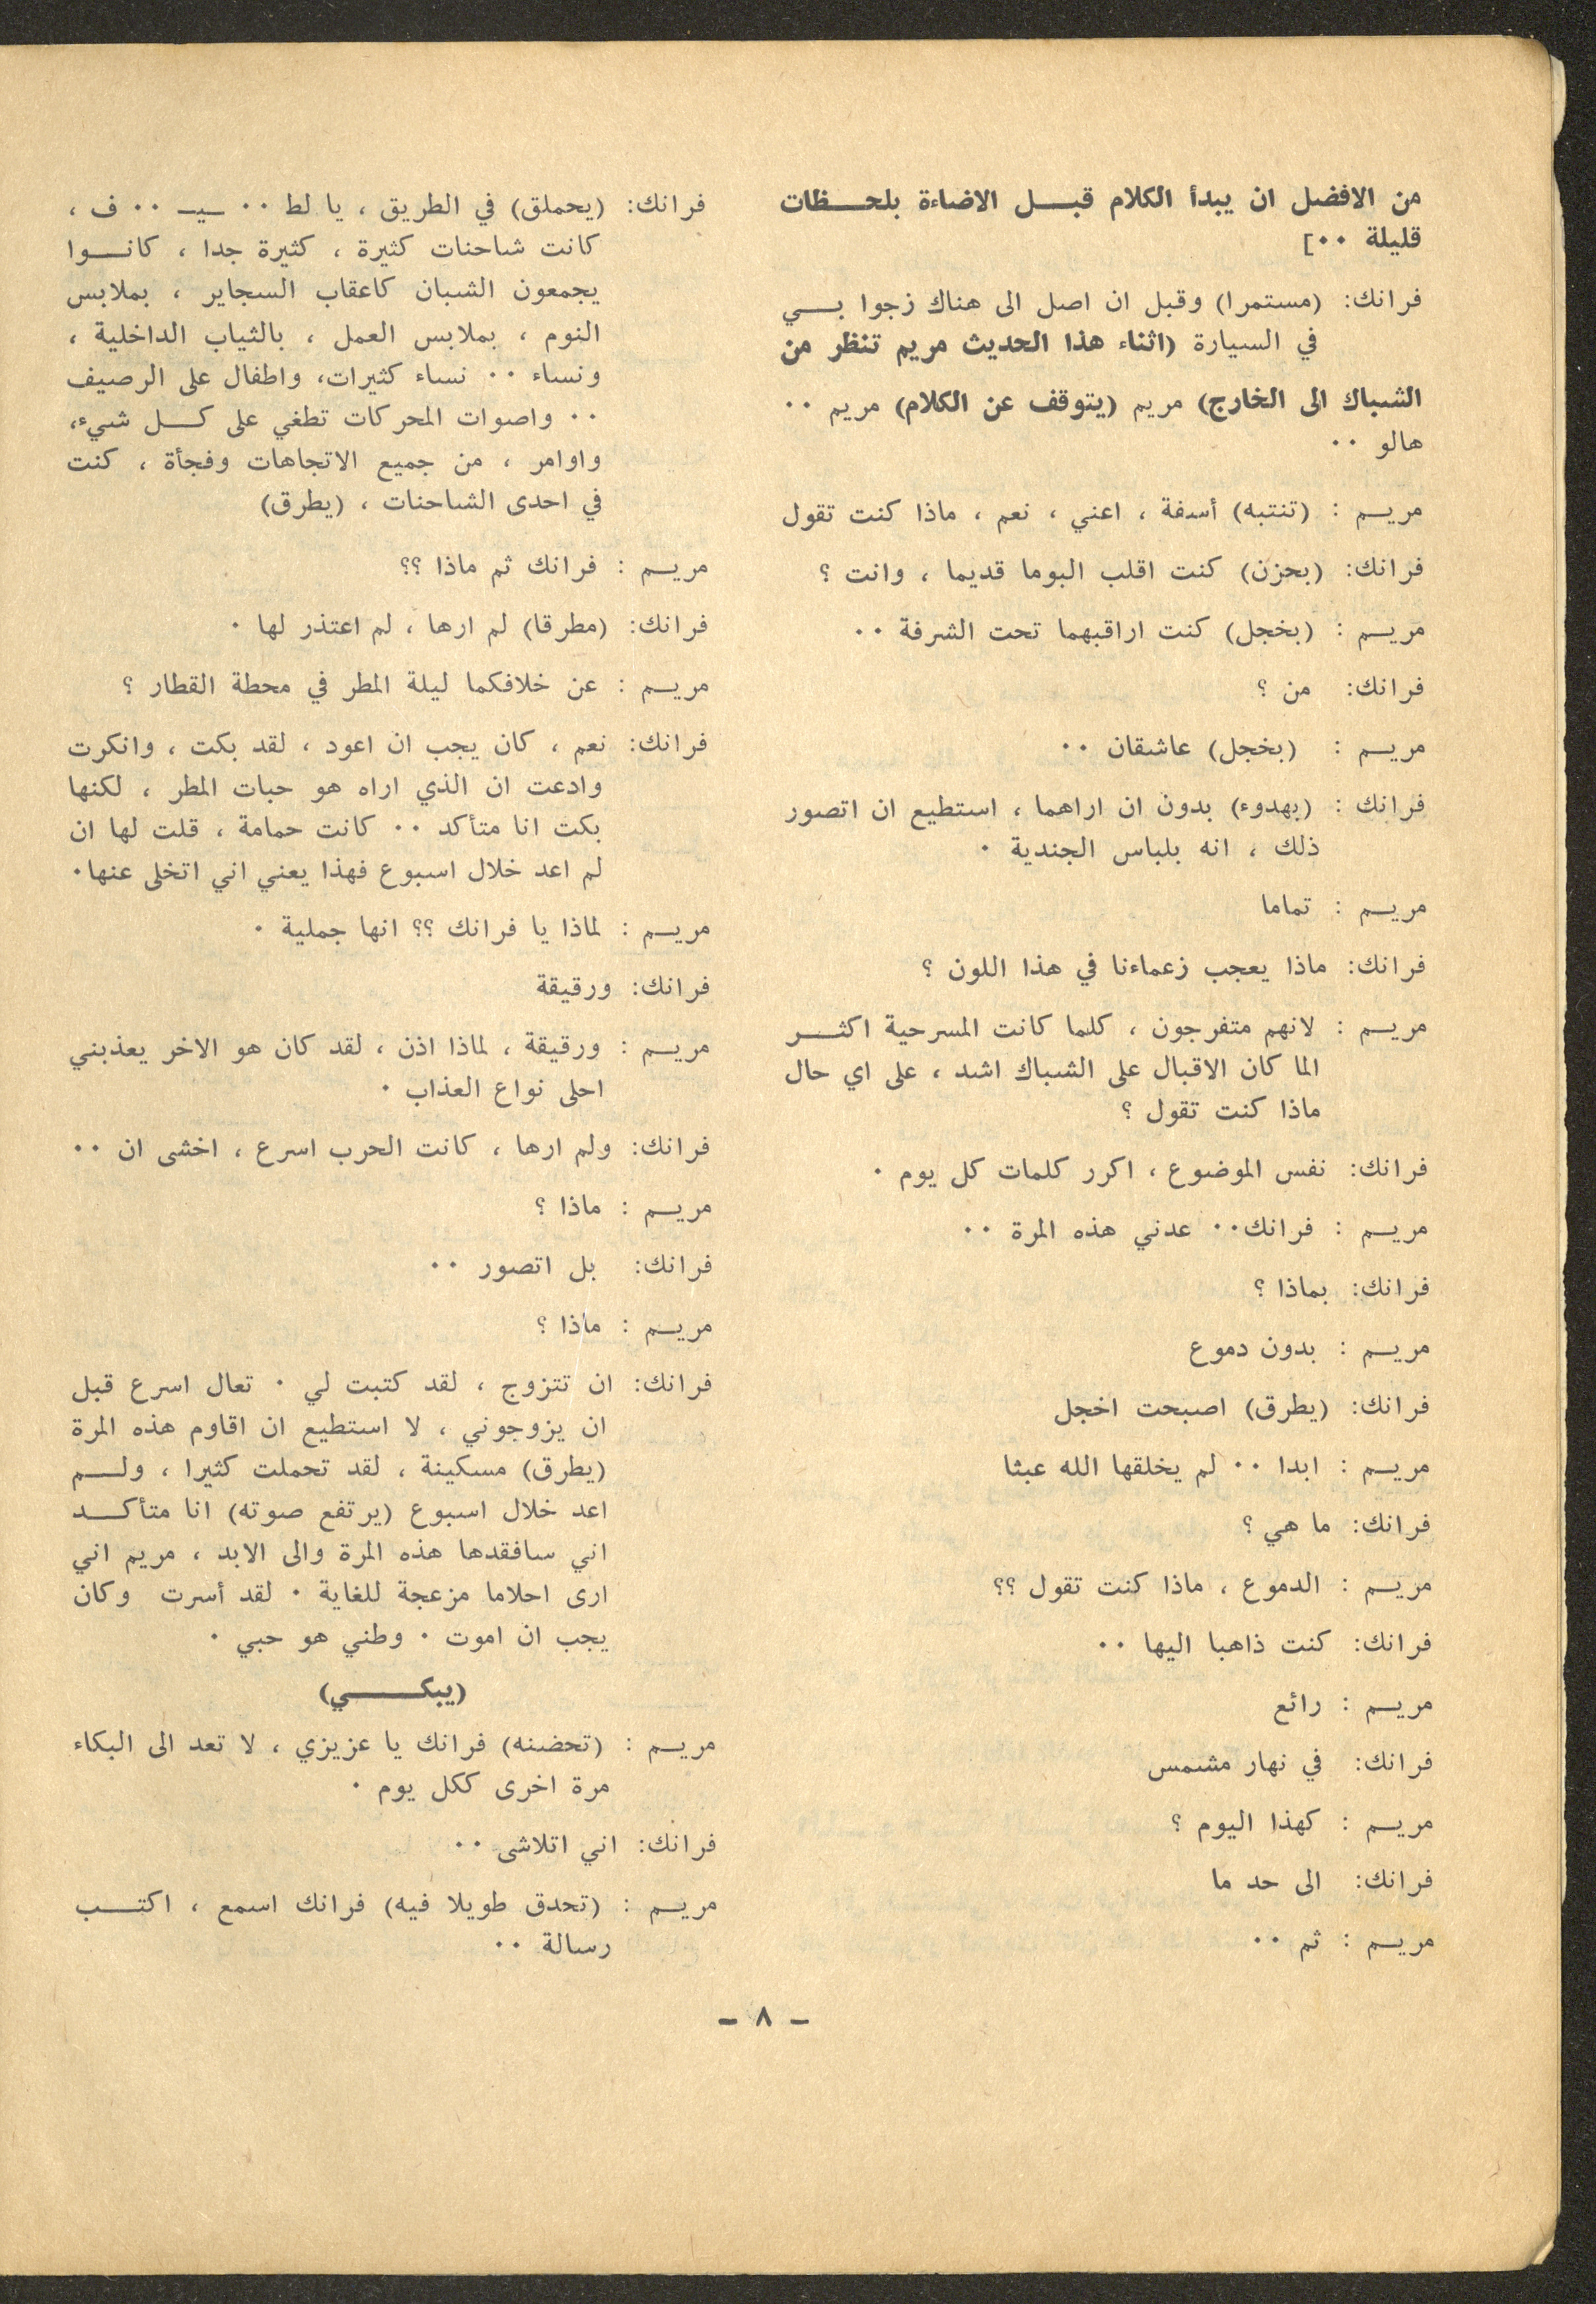 من الافضل ان يبدأ الكلام قبل الاضاءة بلحظات
قليلة ٠٠]
فرانك: (مستمرا) وقبل ان اصل الى هناك زجوا بي
في السيارة (اثناء هذا الحديث مريم تنظر من
الشباك الى الخارج) مريم (يتوقف عن الكلام) مريم ٠٠
هالو ٠٠
مريم : (تنتبه) أسفة ، اعني ، نعم ، ماذا كنت تقول
فرانك: (بحزن) كنت اقلب البوما قديما ، وانت ؟
مريم : (بخجل) كنت اراقبهما تحت الشرفة ٠٠
فرانك: من ؟
مريم : (بخجل) عاشقان ٠٠
فرانك : (بهدوء) بدون ان اراهما ، استطيع ان اتصور
ذلك ، انه بلباس الجندية ٠
مريم : تماما
فرانك: ماذا يعجب زعماءنا في هذا اللون ؟
مريم : لانهم متفرجون ، كلما كانت المسرحية اكثر
الما كان الاقبال على الشباك اشد ، على اي حال
ماذا كنت تقول ؟
فرانك: نفس الموضوع ، اكرر كلمات كل يوم ٠
مريم : فرانك٠٠ عدني هذه المرة ٠٠
فرانك: بماذا ؟
مريم : بدون دموع
فرانك: (يطرق) اصبحت اخجل
مريم : ابدا ٠٠ لم يخلقها الله عبثا
فرانك: ما هي ؟
مريم : الدموع ، ماذا كنت تقول ؟؟
فرانك: كنت ذاهبا اليها ٠٠
مريم : رائع
فرانك: في نهار مشمس
مريم : كهذا اليوم ؟
فرانك: الى حد ما
مريم : ثم ٠٠
فرانك: (يحملق) في الطريق ، يا لط ٠٠ ـيـ ٠٠ ف ،
كانت شاحنات كثيرة ، كثيرة جدا ، كانوا
يجمعون الشبان كاعقاب السجاير ، بملابس
النوم ، بملابس العمل ، بالثياب الداخلية ،
ونساء ٠٠ نساء كثيرات، واطفال على الرصيف
٠٠ واصوات المحركات تطغي على كل شيء،
واوامر ، من جميع الاتجاهات وفجأة ، كنت
في احدى الشاحنات ، (يطرق)
مريم : فرانك ثم ماذا ؟؟
فرانك: (مطرقا) لم ارها ، لم اعتذر لها ٠
مريم : عن خلافكما ليلة المطر في محطة القطار ؟
فرانك: نعم ، كان يجب ان اعود ، لقد بكت ، وانكرت
وادعت ان الذي اراه هو حبات المطر ، لكنها
بكت انا متأكد ٠٠ كانت حمامة ، قلت لها ان
لم اعد خلال اسبوع فهذا يعني اني اتخلى عنها٠
مريم : لماذا يا فرانك ؟؟ انها جملية ٠
فرانك: ورقيقة
مريم : ورقيقة ، لماذا اذن ، لقد كان هو الاخر يعذبني
احلى نواع العذاب ٠
فرانك: ولم ارها ، كانت الحرب اسرع ، اخشى ان ٠٠
مريم : ماذا ؟
فرانك: بل اتصور ٠٠
مريم : ماذا ؟
فرانك: ان تتزوج ، لقد كتبت لي ٠ تعال اسرع قبل
ان يزوجوني ، لا استطيع ان اقاوم هذه المرة
(يطرق) مسكينة ، لقد تحملت كثيرا ، ولم
اعد خلال اسبوع (يرتفع صوته) انا متأكد
اني سافقدها هذه المرة والى الابد ، مريم اني
ارى احلاما مزعجة للغاية ٠ لقد أسرت وكان
يجب ان اموت ٠ وطني هو حبي ٠
(يبكي)
مريم : (تحضنه) فرانك يا عزيزي ، لا تعد الى البكاء
مرة اخرى ككل يوم ٠
فرانك: اني اتلاشى ٠٠
مريم : (تحدق طويلا فيه) فرانك اسمع ، اكتب
رسالة ٠٠
- ٨ -